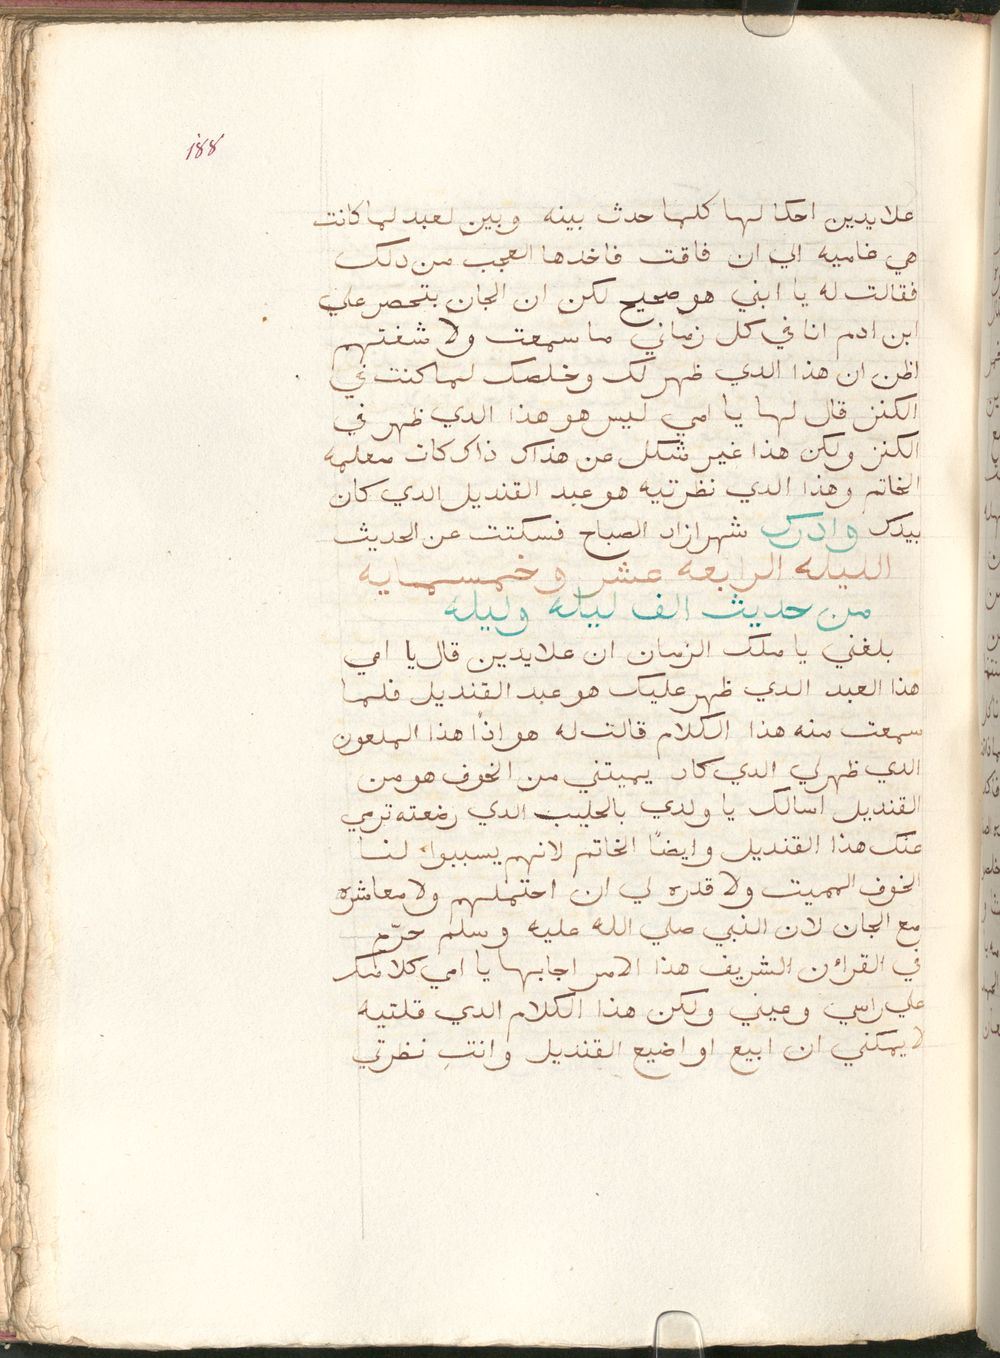 188
علايدين احكا لها كلما حدث بينه وبين لعبد لما كانت
هي غاميه الي ان فاقت فاخدها العجب من دلك
فقالت له يا ابني هو صحيح لكن ان الجان بتحصر علي
ابن ادم انا في كل زماني ما سمعت ولا شفتهم
اظن ان هذا الدي ظهر لك وخلصك لما كنت في
الكنز قال لها يا امي ليس هو هذا الدي ظهر في
الكنز ولكن هذا غير شكل عن هذاك ذاك كان معلمه
الخاتم وهذا الدي نظرتيه هو عبد القنديل الدي كان
بيدك وادرك شهرازاد الصباح فسكتت عن الحديث
الليله الرابعه عشر وخمسمايه
من حديث الف ليله وليله
بلغني يا ملك الزمان ان علايدين قال يا امي
هذا العبد الدي ظهر عليك هو عبد القنديل فلما
سمعت منه هذا الكلام قالت له هو اذًا هذا الملعون
الدي ظهر لي الدي كاد يميتني من الخوف هو من
القنديل اسالك يا ولدي بالحليب الدي رضعته ترمي
عنك هذا القنديل وايضًا الخاتم لانهم يسببوا لنا
الخوف المميت ولا قدره لي ان احتملهم ولا معاشره
مع الجان لان النبي صلي الله عليه وسلم حرّم
في القرائن الشريف هذا الامر اجابها يا امي كلامك
علي راسي وعيني ولكن هذا الكلام الدي قلتيه
لا يمكني ان ابيع او اضيع القنديل وانتِ نظرتي